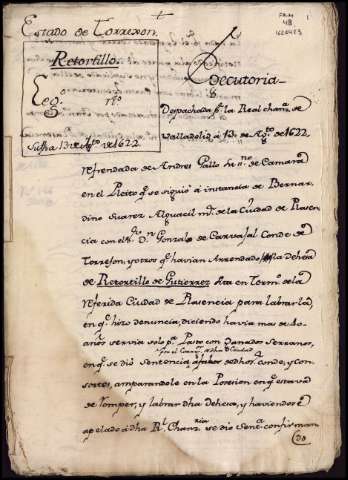 Estado de Torrexon.
Retortillo.
Leg.º nº
su fha 13 de Agto de 1622
1
Executoria
Despachada pr. la Real chanria de
Valladolid à 13 de Agto de 1622
refrendada de Andres Pallo ssno de Camara
en el Pleito qe se siguiò à instancia de Bernar
dino Suarez Alguacil mr. de la Ciudad de Plasen
cia con el Dn Gonzalo de Carvajal Conde de
Torrejon, y otros qe havian Arrendado la dehesa
de Retortillo de Gutierrez sita en Termo de la
referida Ciudad de Plasencia para labrarla,
en qe hizo denuncia, diciendo havia mas de 40
años servia solo pa Pasto con Ganados Serranos,
por el Corregr de dha Ciudad
en qe se diò Sentencia à favor de dho Conde, y con
sortes, amparandole en la Posesion en qe estava
de Romper, y labrar dha dehesa, y haviendose
apelado à dha Rl Chanria se diò Senta confirman
do